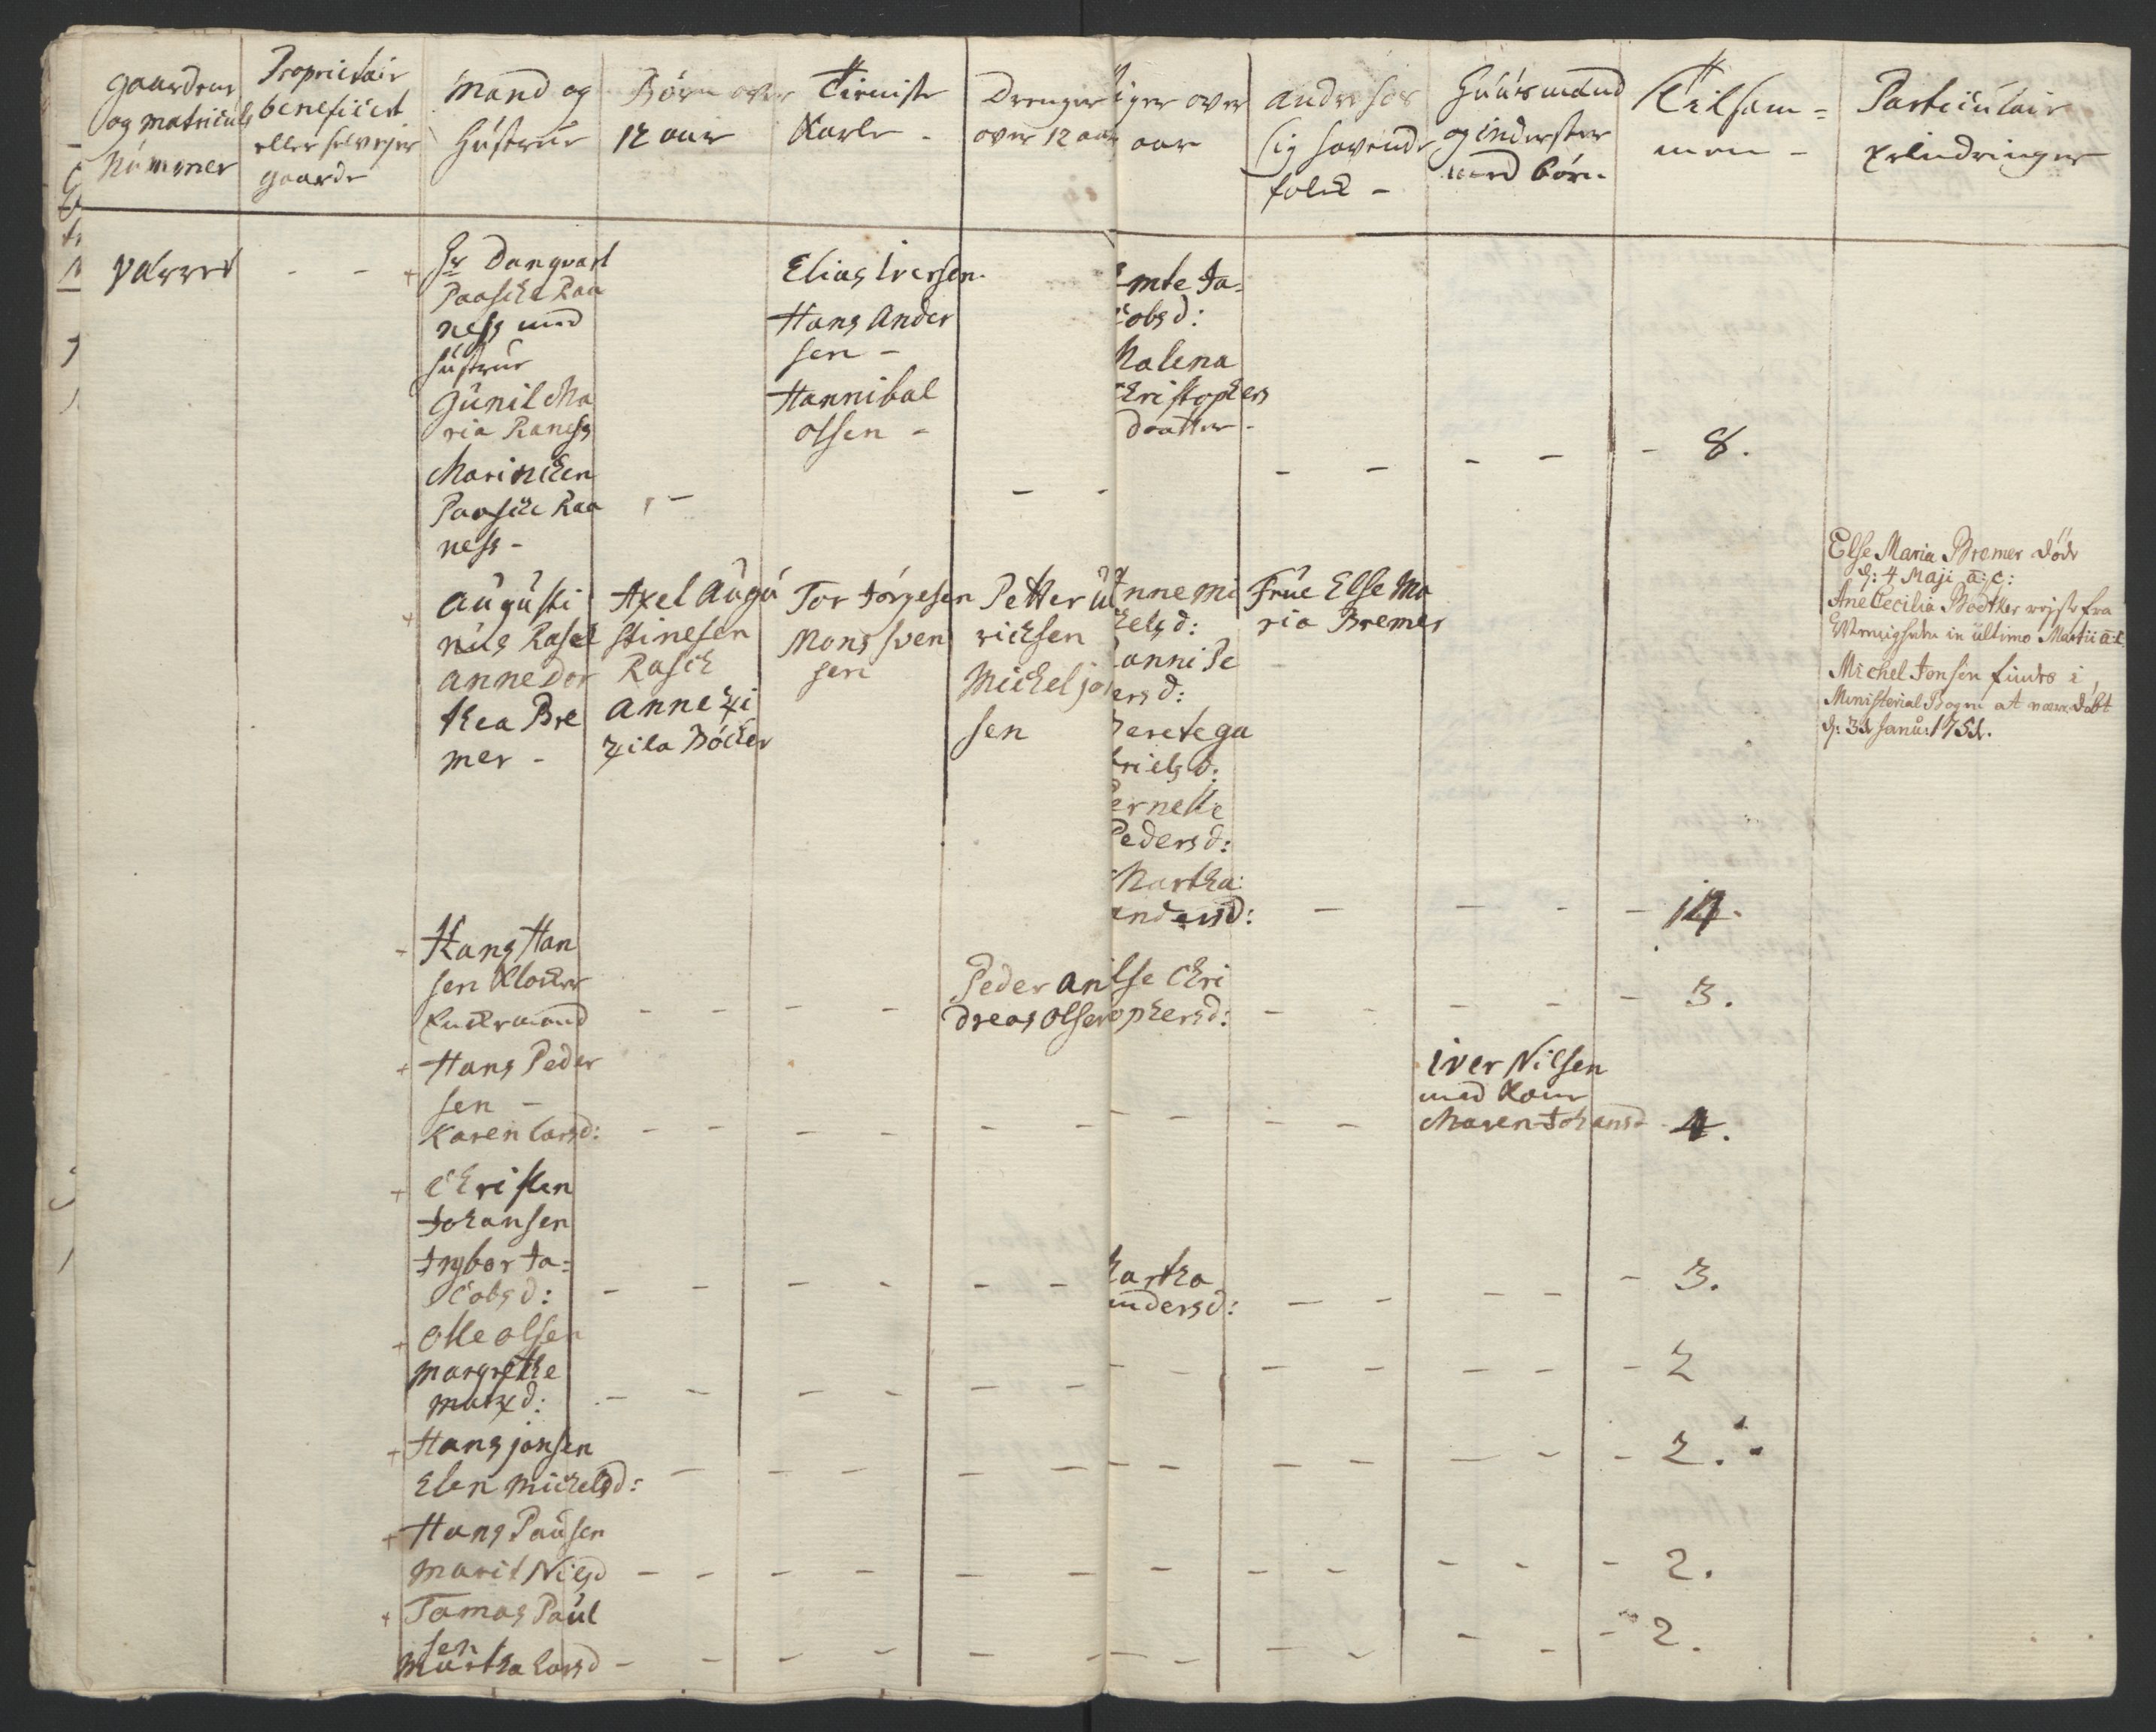 gaardens
og matriculs
Nummer
Proprietair
beneficert
eller selvejer
gaarde
Mand og
Hustrue
Børn over
12 aar
Tieniste
Karle -
Drenger
over 12 aar
iger over
aar
andre for
sig savende
folck -
Huusmænd
og inderster
med børn
Tilsam=
men -
Particulair
Erindringer
Værret - -
+ Hr Danqvart
Paasche Raa
ness med
Hustrue
Gunil Ma
ria Raness
Marinicken
Paasche Raa
ness -
Elias Iversen.
Hans Ander
sen -
Hannibal
olsen -
mte Ja=
cobsd:
Malena
Christophers
daatter -
- - - - - 8.
+ Augusti
nus Rasch
anne Dor
thea Bre
mer -
Axel Augu
stinesen
Rasch
anne Zi
zila Böcker
Tor Jörgesen
Mons Sven
sen
Petter U
richsen
Michel jo
sen
Anne Mi
chelsd:
anni Pe
ersd:
Berete ga
brielsd:
Pernelle
Pedersd:
Martha
andersd:
Frue Else Ma
ria Bremer
- - - - 14.
Else Maria Bremer döde
d: 4 Maji a: c:
Ane Cecilia Bödtker rejste fra
in ultimo Martii a: c
Michel Jonsen findes i
Ministerial Bogen at være döbt
d: 3d Janu: 1751.
- Hans Han
sen Klocker
Enckemand
- - - -
Peder An
dreas olsen
lse Chri
ophersd:
- - - - - 3.
+ Hans Peder
sen -
Karen Larsd: - - - - - - - - - -
Iver Nilsen
med Kone
Maren Johansd 4.
+ Christen
Johansen
Ingbor Ja=
cobsd: - - - - - -
Martha
andersd:
- - - - - 3.
+ Olle olsen
Margrethe
Marxd: - - - - - - - - - - - - 2
+ Hans jonsen
Elen Michelsd: - - - - - - - - - - - - 2.
+ Hans Paulsen
Marit Nilsd - - - - - - - - - - - - 2.
+ Tomas Paul
sen
Martha Larsd - - - - - - - - - - - - 2.